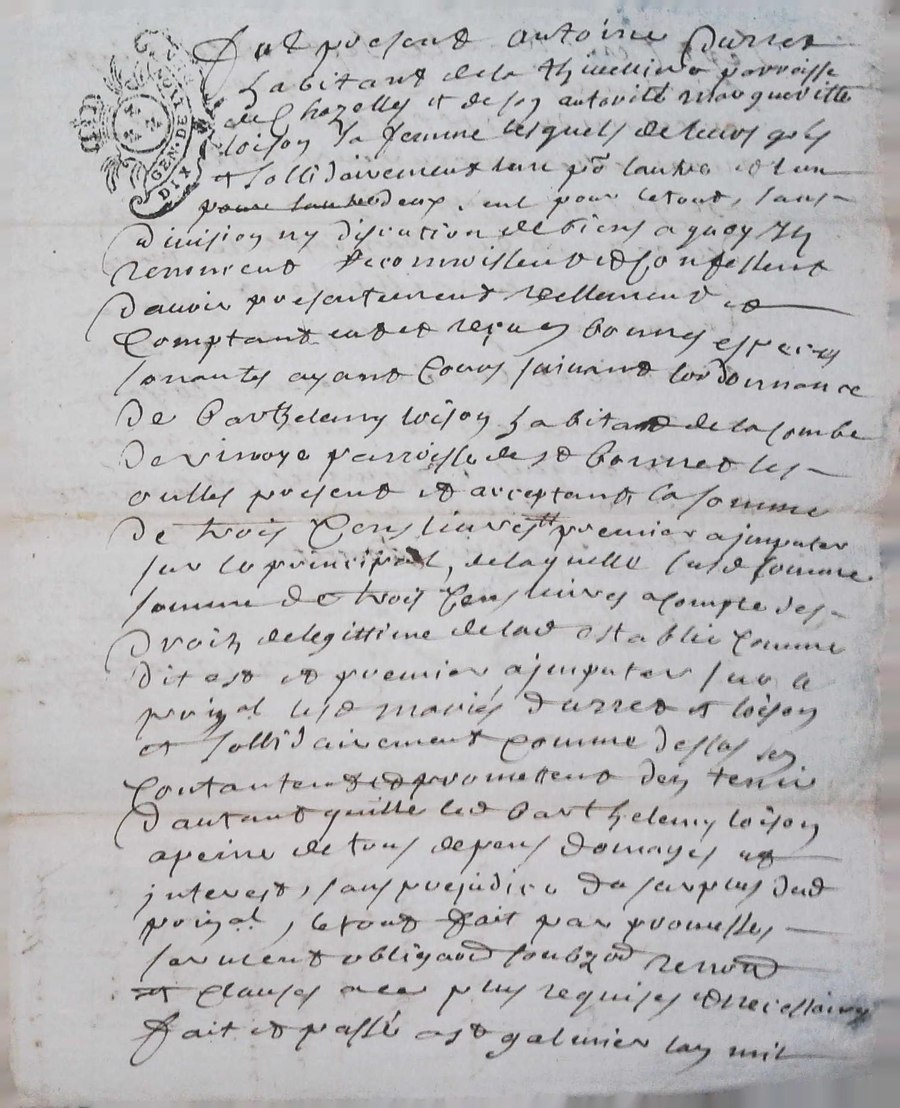 GEN. DE LYON
DIX
Fut present antoine Durret
habitant de la thivellier parroisse
de Chazelles et de soy autorité margueritte
loison sa femme lesquels de leurs gres
et sollidairement lun po lautre et lun
pour lautre deux, eul pour letout, sans
division ny discution de biens a quoy Ils
renoncent Reconnoissent et Confessent
davoir presentement reellement et
Comptant eut et reçeu bonnes especes
sonantes ayant Cours suivant lordonnance
de Barthelemy loison habitant de la Combe
de vinoye parroisse de st bonnet les
oulles present et acceptant la somme
de trois Cens livres premier a jmputer
sur le principal, de laquelle susd somme
somme de trois Cens livres a compte des
droits de legittime de lad establie Comme
dit est et premier a jmputer sur le
prinpal lesd mariés Durret et loison
et sollidairement Comme dessus sen
Contantent et promettent den tenir
dautant quitte led Barthelemy loison
a peine de tous depens domages et
jnterest, sans prejudice du surplus dud
prinpal, le tout fait par promesses
serment obligaon soubzon renon
et clauses a ce plus requises et necessaires
fait et passé a st galmier lan mil